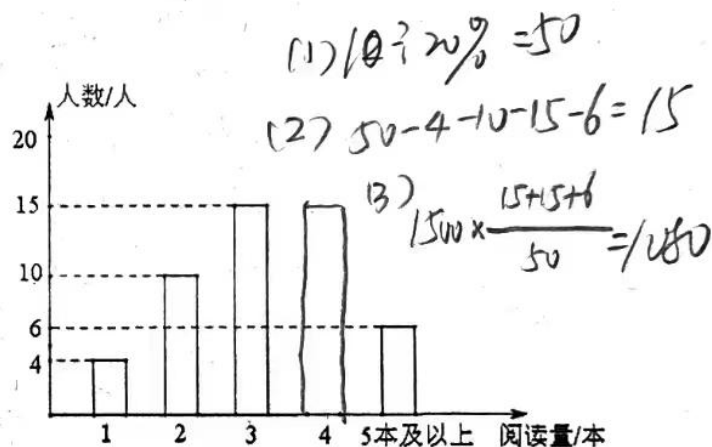 (1) 10÷20%=50
人数/人
(2) 50-4-10-15-6=15
20
(3) 1500×(15+15+6)/50=1080
15
10
6
4
1 2 3 4 5本及以上 阅读量/本